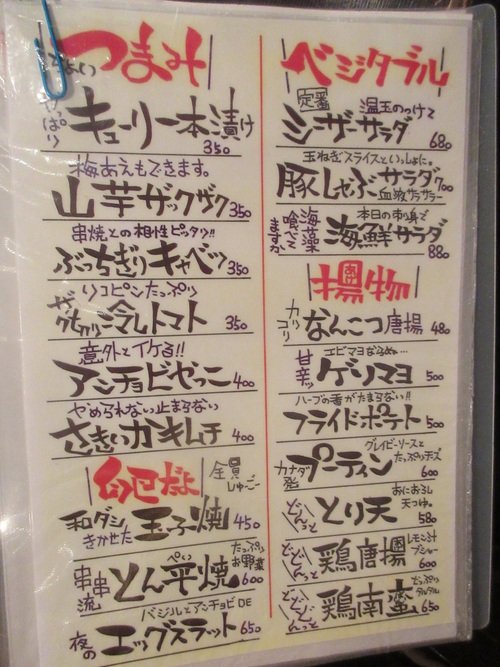 つまみ
キューリ一本漬け 350
梅あえもできます。
山芋ザックザク 350
串焼との相性ピッタリ!!
ぶっちぎりキャベツ 350
リコピンたっぷり
冷しトマト 350
意外とイケる!!
アンチョビポテっこ 400
やめられない止まらない
さきいかキムチ 400
全員しゅーごー
和ダシきかせた 玉子焼 450
串串流 とん平焼 600
ぺい
たっぷりお野菜
バジルとアンチョビDE
夜の エッグスラット 650
ベジタブル
定番 温玉のっけて
シーザーサラダ 680
玉ねぎスライスといっしょに。
豚しゃぶサラダ 700
血液サラサラー
本日の刺身で
海藻喰べてますか
海鮮サラダ 880
揚物
あげ
カリコリ なんこつ唐揚 480
エビマヨならぬ…
甘辛ッ ゲソマヨ 500
ハーブの香がたまらない!!
フライドポテト 500
グレイビーソースとたっぷりチーズ
カナダ発 プーティン 600
おにおろし天つゆ。
どどんっと とり天 580
どどどんっと 鶏唐揚 600
レモン汁ブシャー
どどどどんっと 鶏南蛮 650
たっぷりタルタル